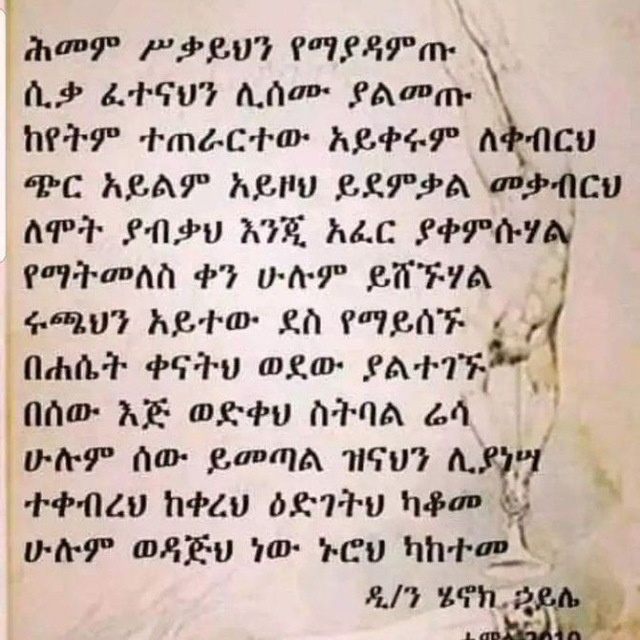 ሕመም ሥቃይህን የማያዳምጡ
ሲቃ ፈተናህን ሊሰሙ ያልመጡ
ከየትም ተጠራርተው አይቀሩም ለቀብርህ
ጭር አይልም አይዞህ ይደምቃል መቃብርህ
ለሞት ያብቃህ እንጂ አፈር ያቀምሱሃል
የማትመለስ ቀን ሁሉም ይሸኙሃል
ሩጫህን አይተው ደስ የማይሰኙ
በሐሴት ቀናትህ ወደው ያልተገኙ
በሰው እጅ ወድቀህ ስትባል ሬሳ
ሁሉም ሰው ይመጣል ዝናህን ሊያነሣ
ተቀብረህ ከቀረህ ዕድገትህ ካቆመ
ሁሉም ወዳጅህ ነው ኑሮህ ካከተመ
ዲ/ን ሄኖክ ኃይሌ
2010